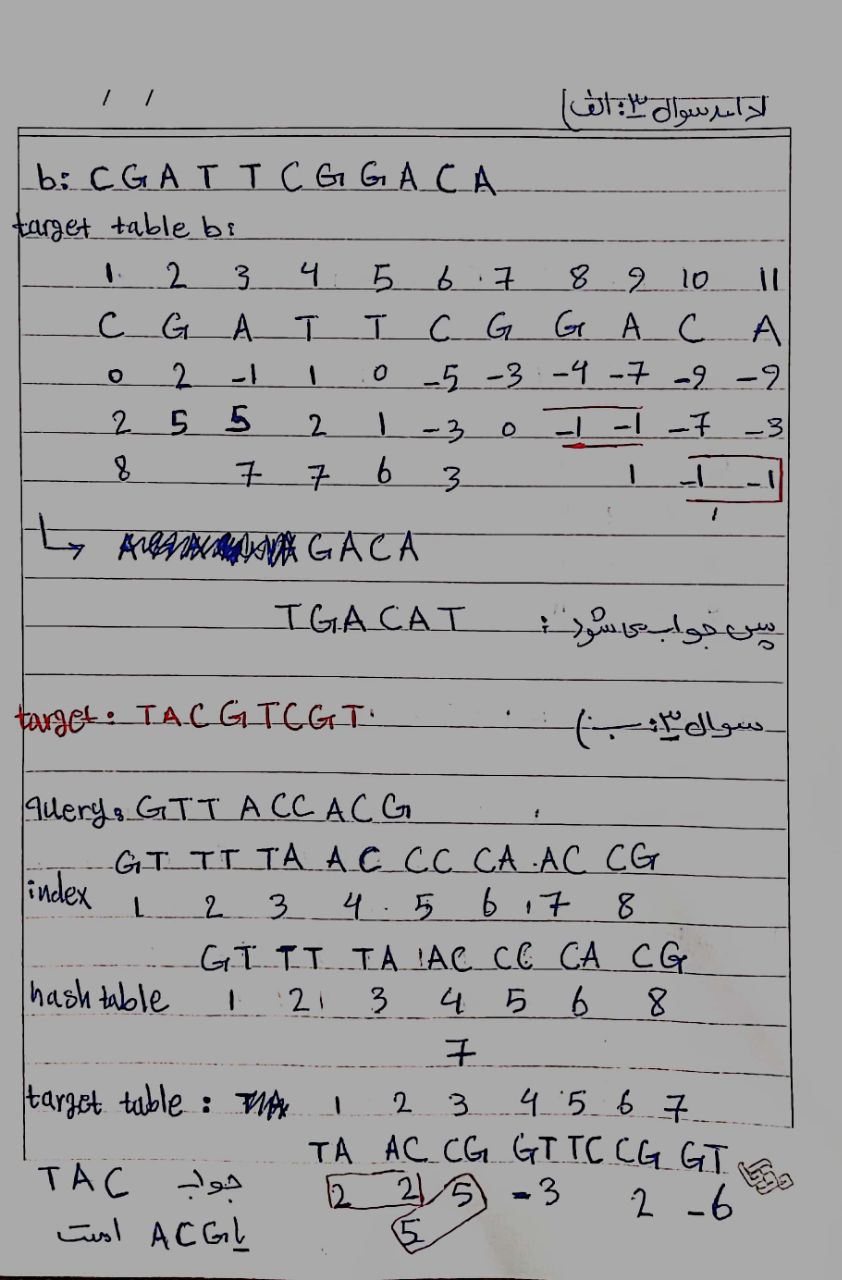 / /
ادامه سوال ۳: الف)
b: C G A T T C G G A C A
target table b:
1 2 3 4 5 6 7 8 9 10 11
C G A T T C G G A C A
0 2 -1 1 0 -5 -3 -4 -7 -9 -9
2 5 5 2 1 -3 0 -1 -1 -7 -3
8 7 7 6 3 1 -1 -1
GACA
پس جواب می شود : TGACAT
سوال ۳: ب)
target: TACGTCGT
query: GTTACCACG
GT TT TA AC CC CA AC CG
index 1 2 3 4 5 6 7 8
GT TT TA AC CC CA CG
hash table 1 2 3 4 5 6 8
7
target table : 1 2 3 4 5 6 7
TA AC CG GT TC CG GT
2 2 5 -3 2 -6
5
جواب TAC
یا ACG است